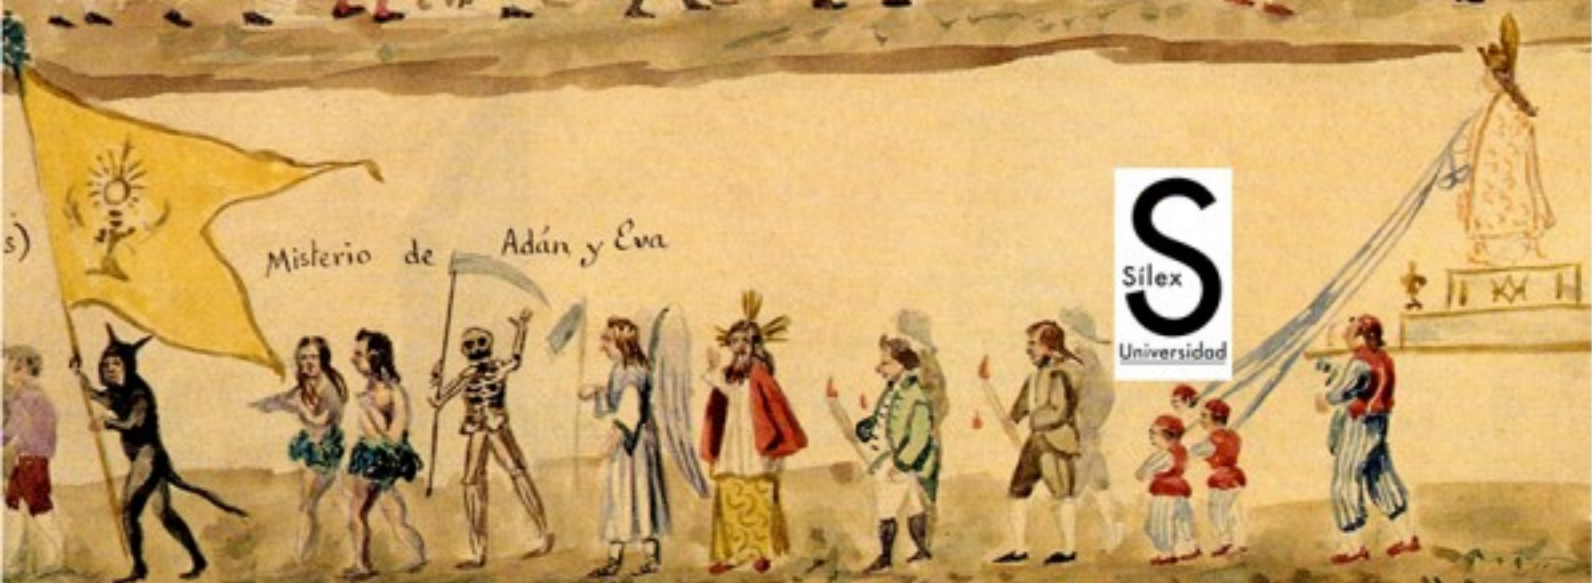 s)
Misterio de Adán y Eva
Sílex
Universidad